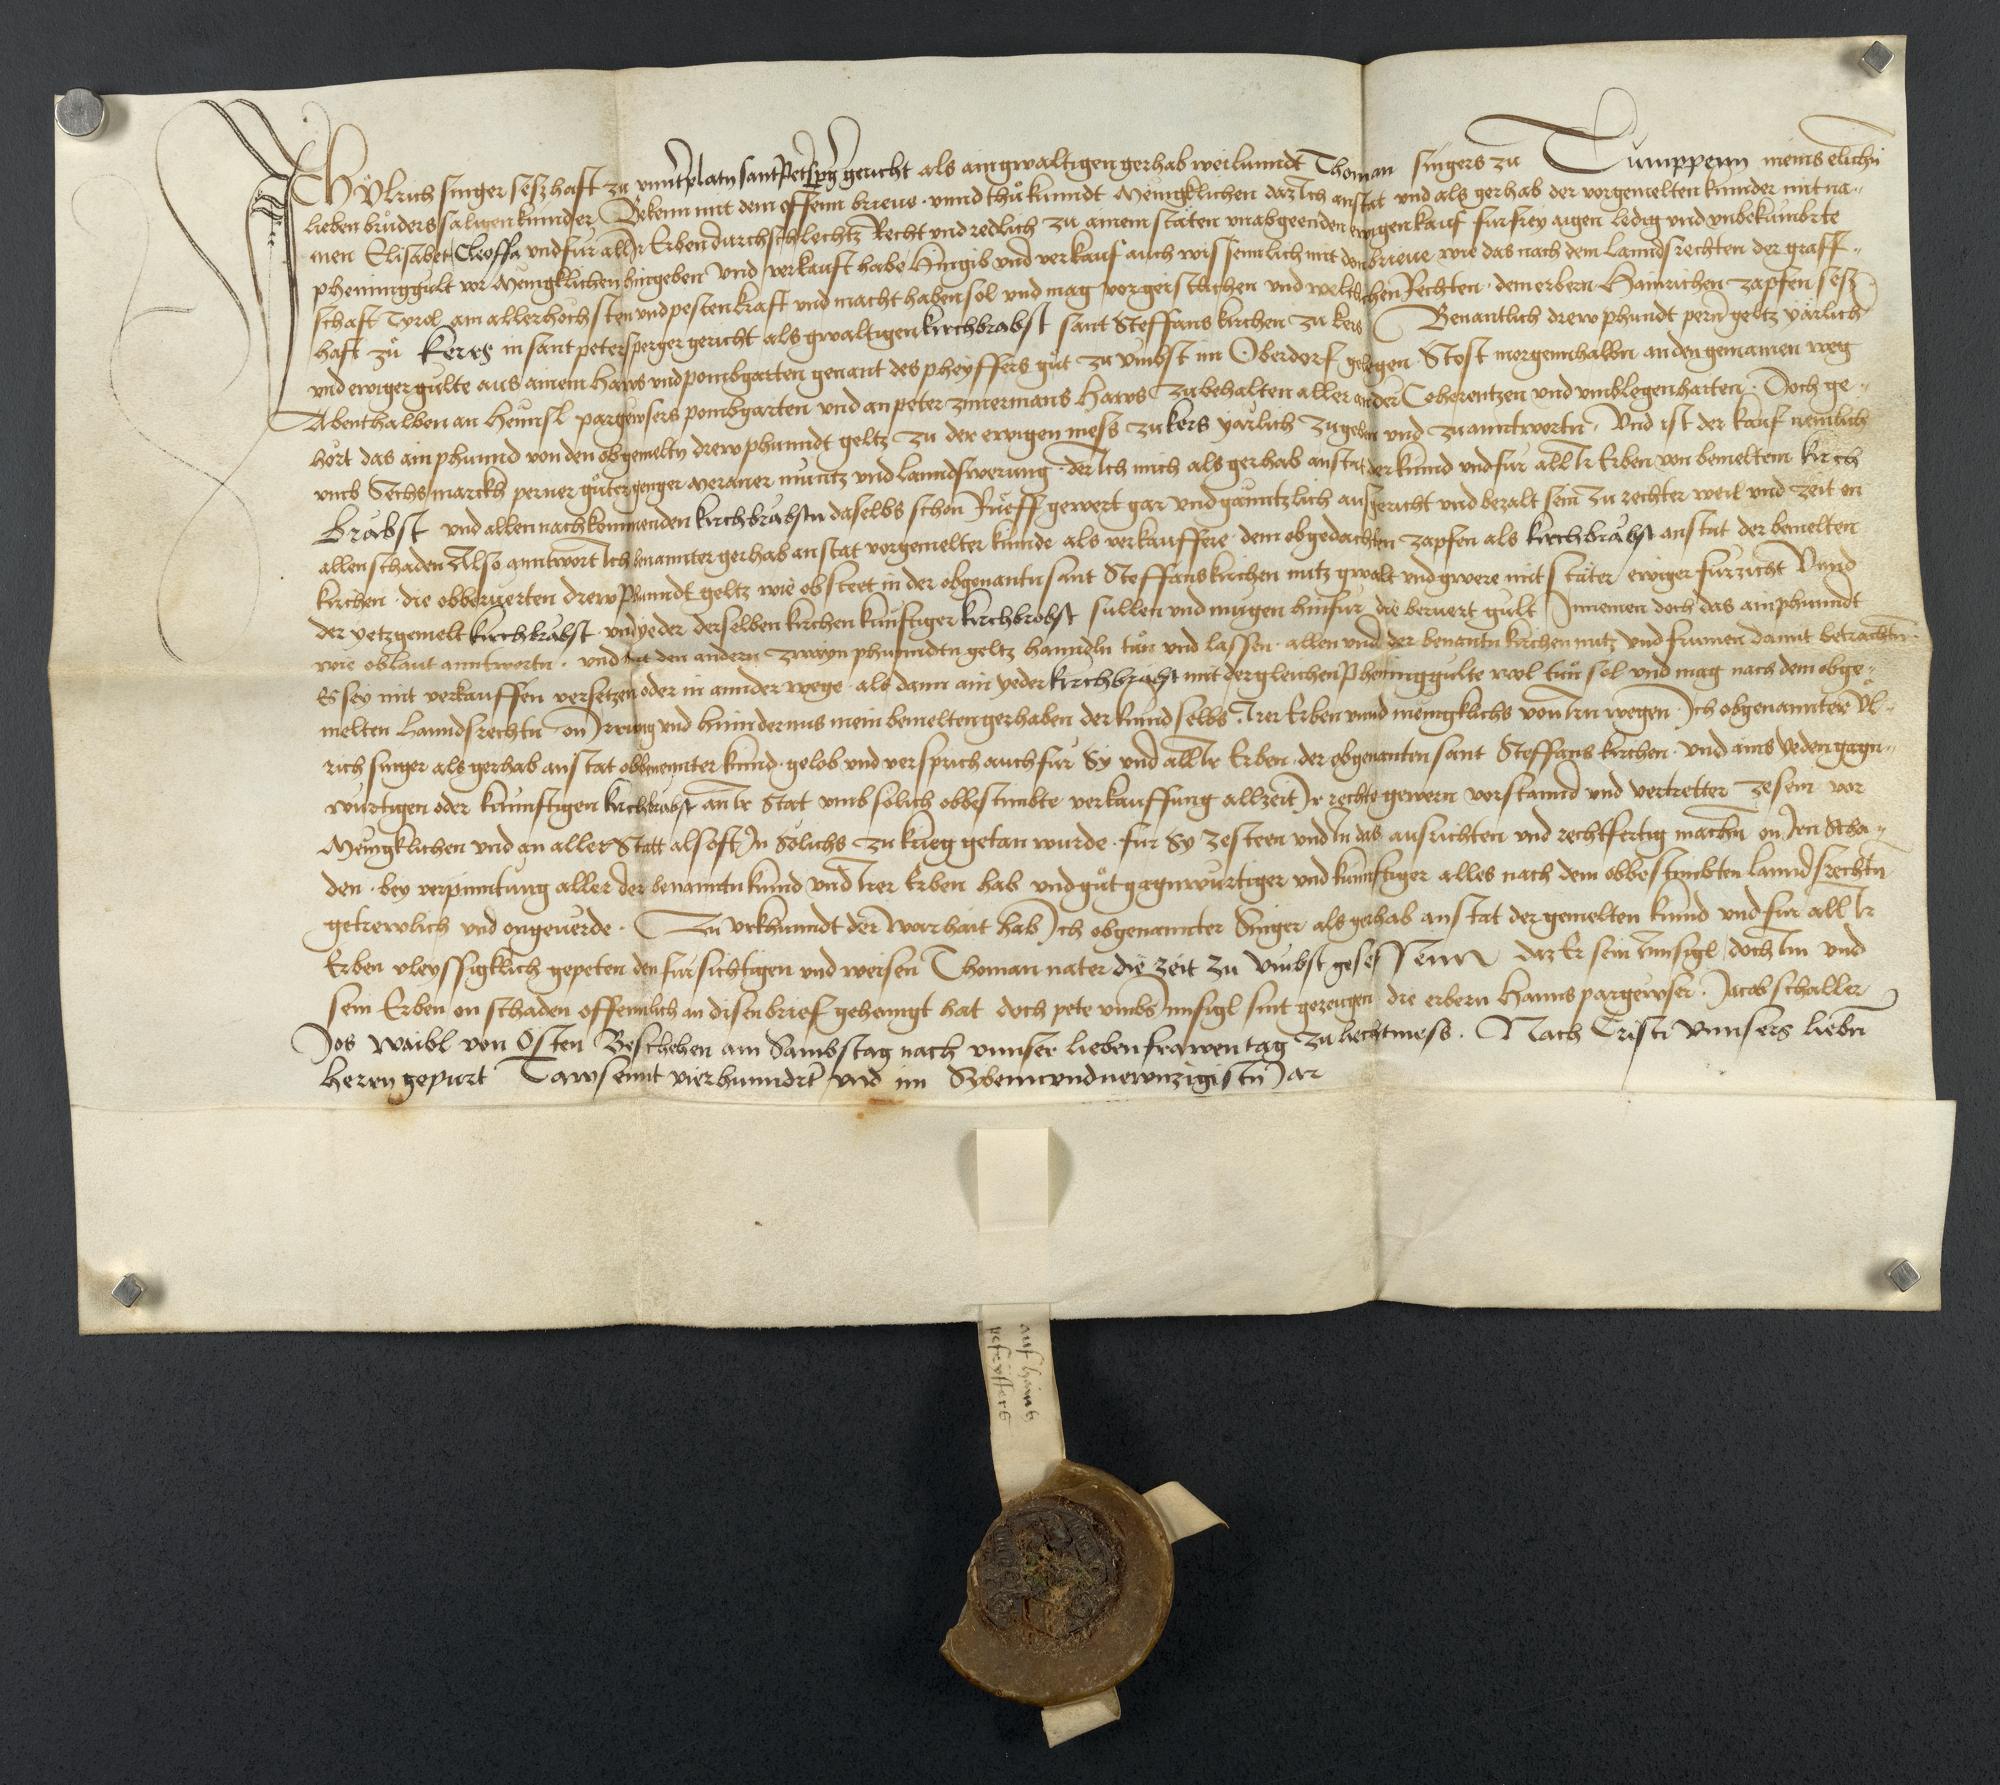 Ich Ŭlrich singer seszhaft zu vnnterplatn sant Petersperg gericht als ain gwaltigen gerhab weilunndt Thoman singers zu Tumppenn meins elichn
lieben bruders saligen kinnder Bekenn mit dem offenn brieue vnnd thu kunndt Menigklichen daz Ich anstat vnd als gerhab der vorgemelten kinnder mit na-
men Elisabet Cleoffa vnd fur all Ir Erben durchschlechtz Recht vnd redlich zu ainem stäten vnabgeenden ewigen kauf fur frey aigen ledig vnd vnbekumbrte
pheninggult vor Menigklichen hingeben vnd verkauft habe Hingib vnd verkauf auch wissenlich mit dem brieue wie das nach dem Lannds rechten der graff-
schaft Tyrol am allerhöchsten vnd pesten kraft vnd macht haben sol vnd mag vor geistlichen vnd weltlichen Rechten dem erbern Hainrichen zapfen sesz
haft zu Kerys in sant petersperger gericht als gwaltigen kirchbrabst sant Steffans kirchen zu kers Benantlich drew phundt perner geltz yärlich
vnd ewiger gulte aus ainem Haws vnd pombgarten genant des pheyffers gut zu vmbst im Oberdorf gelegen Stost morgennhalbn an den gemainen weg
Abenthalben an Heunsl pargewsers pombgarten vnd an peter zimermans Haws zubehalten aller ander Coherentzen vnd vmblegenhaiten Doch ge-
hört das ain phunnd von den obgemeltn drew phunndt geltz zu der ewigen mess zu kers yärlich zugeben vnd zu anntwortn Vnd ist der kauf nemlich
vmb Sechs marckh perner guter genger Meraner muntz vnd lanndswerung der Ich mich als gerhab anstat der kinnd vnd fur all Ir Erben von bemeltem kirch
brabst vnd allen nachkommenden kirchbrabstn daselbs schon Rueff gewert gar vnd gänntzlich ausgericht vnd bezalt sein zu rechter weil vnd zeit on
allen schaden Also anntwort Ich benannter gerhab an stat vorgemelter kinnde als verkauffere dem obgedachten zapfen als kirchbrabst anstat der bemelten
kirchen die obberuerten drew Phunndt geltz wie obsteet in der obgenantn sant Steffans kirchen nutz gwalt vnd gwere mit stäter ewiger furzicht Vnnd
der yetzgemelt kirchbrabst vnd yeder derselben kirchen kunftiger kirchbrobst sullen vnd mugen hinfur die beruert gult Innemen doch das ain phunndt
wie oblaut anntwortn vnd mit den andern zwayn phunndtn geltz hanndeln tun vnd lassen allen vnd der benantn kirchen nutz vnd frumen damit betrachtn
Es sey mit verkauffen versetzen oder in annder wege als dann ain yeder kirchbrabst mit dergleichen Pheninggulte wol tun sol vnd mag nach dem obge-
melten Lanndsrechtn on Irrung vnd hinndernus mein bemelten gerhaben der kinnd selbs Irer Erben vnnd menigklichs von Irn wegen Ich obgenannter Ul-
rich singer als gerhab anstat obbenennter kinnd gelob vnd versprich auch fur Sy vnd all Ir Erben der obgenanten sant Steffans kirchen vnd ains yeden gagn-
wurtigen oder kunnftigen kirchbrabst an Ir Stat vmb solich obbestimbte verkauffung allzeit Ir rechte gewern vorstannd vnd vertretter zesein vor
Menigklichen vnd an aller Statt als oft In Solichs zu krieg getan wurde fur Sy zesteen vnd In das ausrichten vnd rechtfertig machn on Iren Scha-
den bey verpinntung aller der benanntn kinnd vnd Irer Erben hab vnd gut gagnwurtiger vnd kunnftiger alles nach dem obbestimbten lanndsrechtn
getrewlich vnd ongeuerde Zu vrkhunndt der Warhait hab Ich obgenannter Singer als gerhab anstat der gemelten kinnd vnd fur all Ir
Erben vleyssigklich gepeten den fursichtigen vnd weisen Thoman nater die zeit zu vmbst gesessenn daz Er sein Innsigl doch Im vnd
sein Erben on schaden offennlich an disen brief gehenngt hat doch pete vmbs Innsigl sint gezeugen die erbern Hanns pargewser Jacob schaller
Jos waibl von Osten Beschehen am Sambstag nach vnnser lieben frawen tag zu liechtmess. Nach Cristi vnnsers liebn
Herrn gepurt Tawsennt vierhunndrt vnd im Sybennvndnewnzigistn Jar
auf hainß
pfeiffers